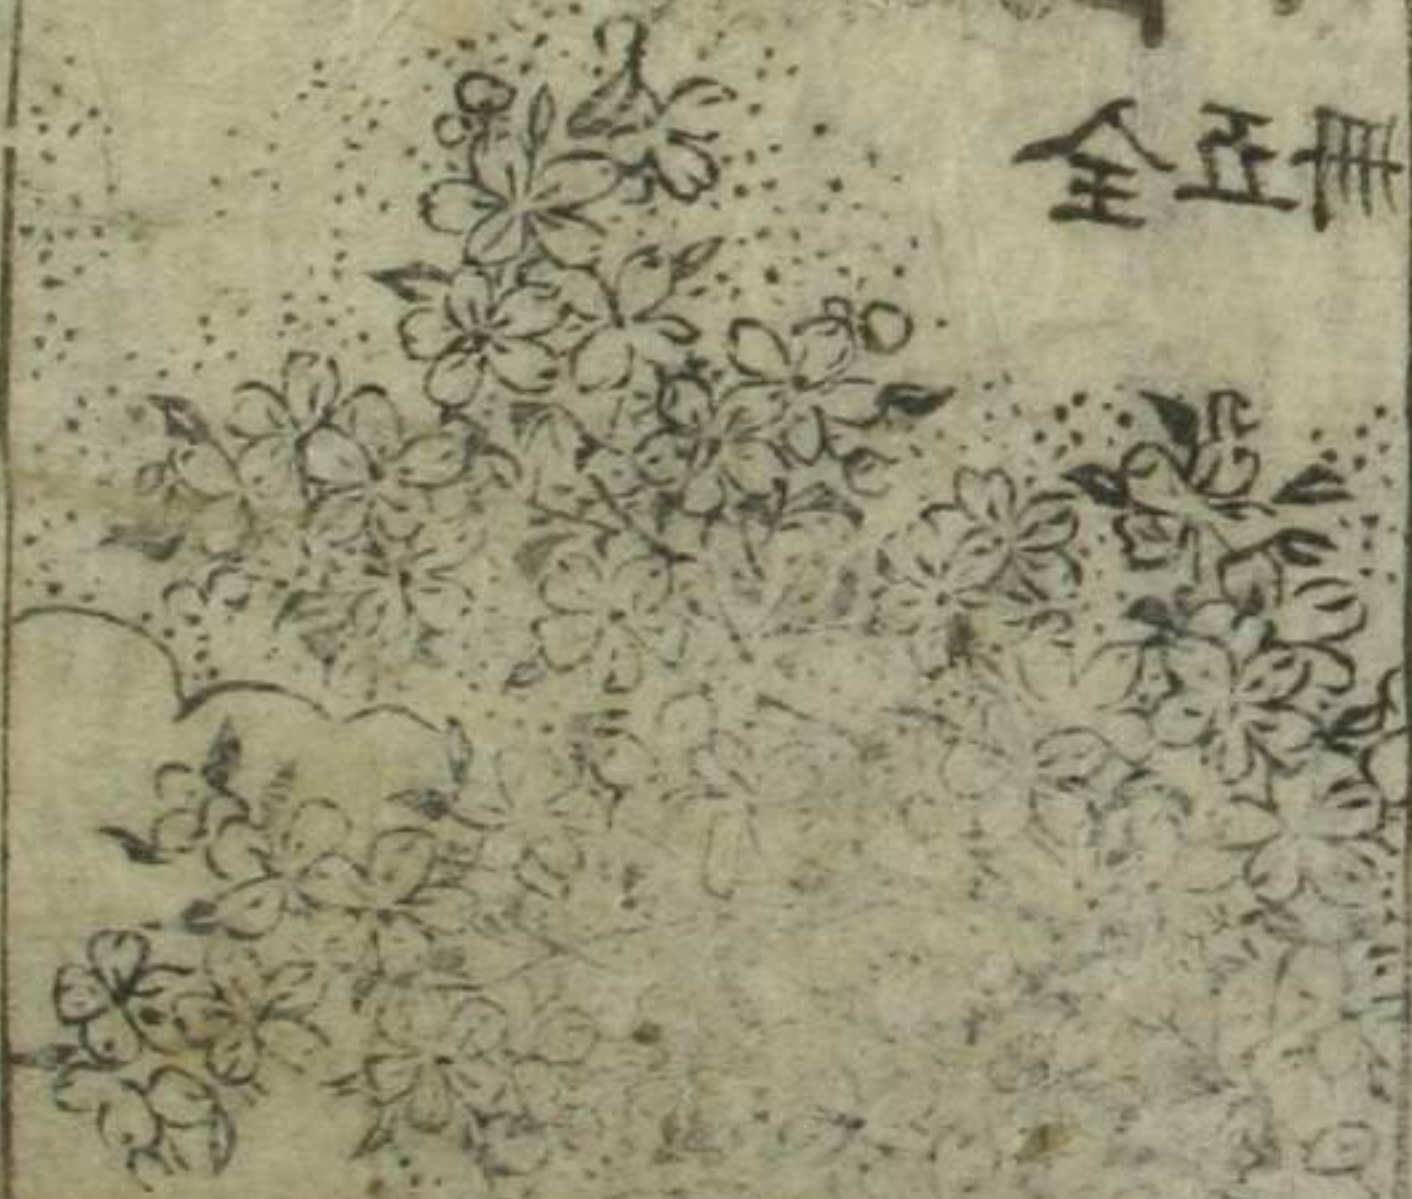 全五冊